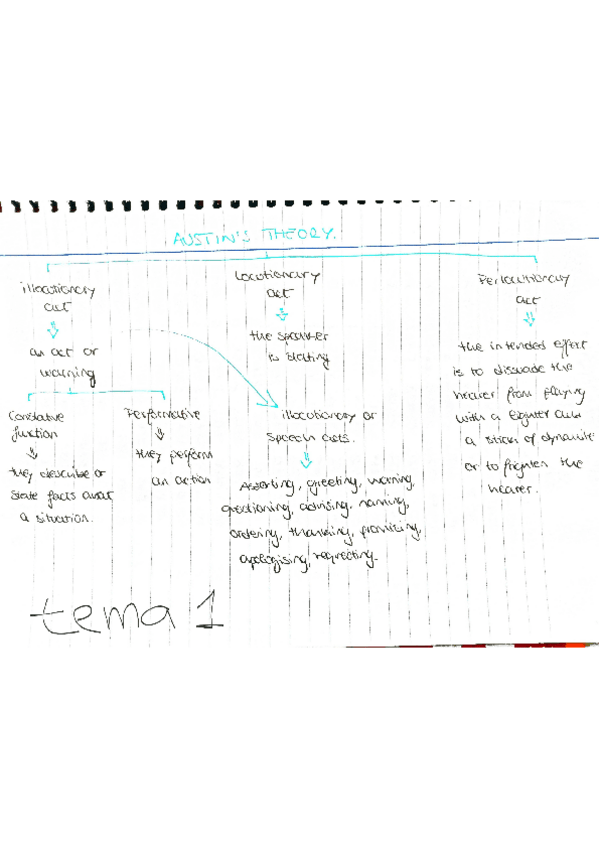 AUSTIN'S THEORY.
illocutionary
act
an act or
warning
Constative
function
they describe or
state facts about
a situation.
Performative
they perform
an action
Locutionary
act
the speaker
is stating
illocutionary or
speech acts.
Asserting, greeting, warning,
questioning, advising, naming,
ordering, thanking, promising,
apologising, regrecting.
Perlocutionary
act
the intended effect
is to dissuade the
hearer from playing
with a lighter and
a stick of dynamite
or to frighten the
hearer.
tema 1